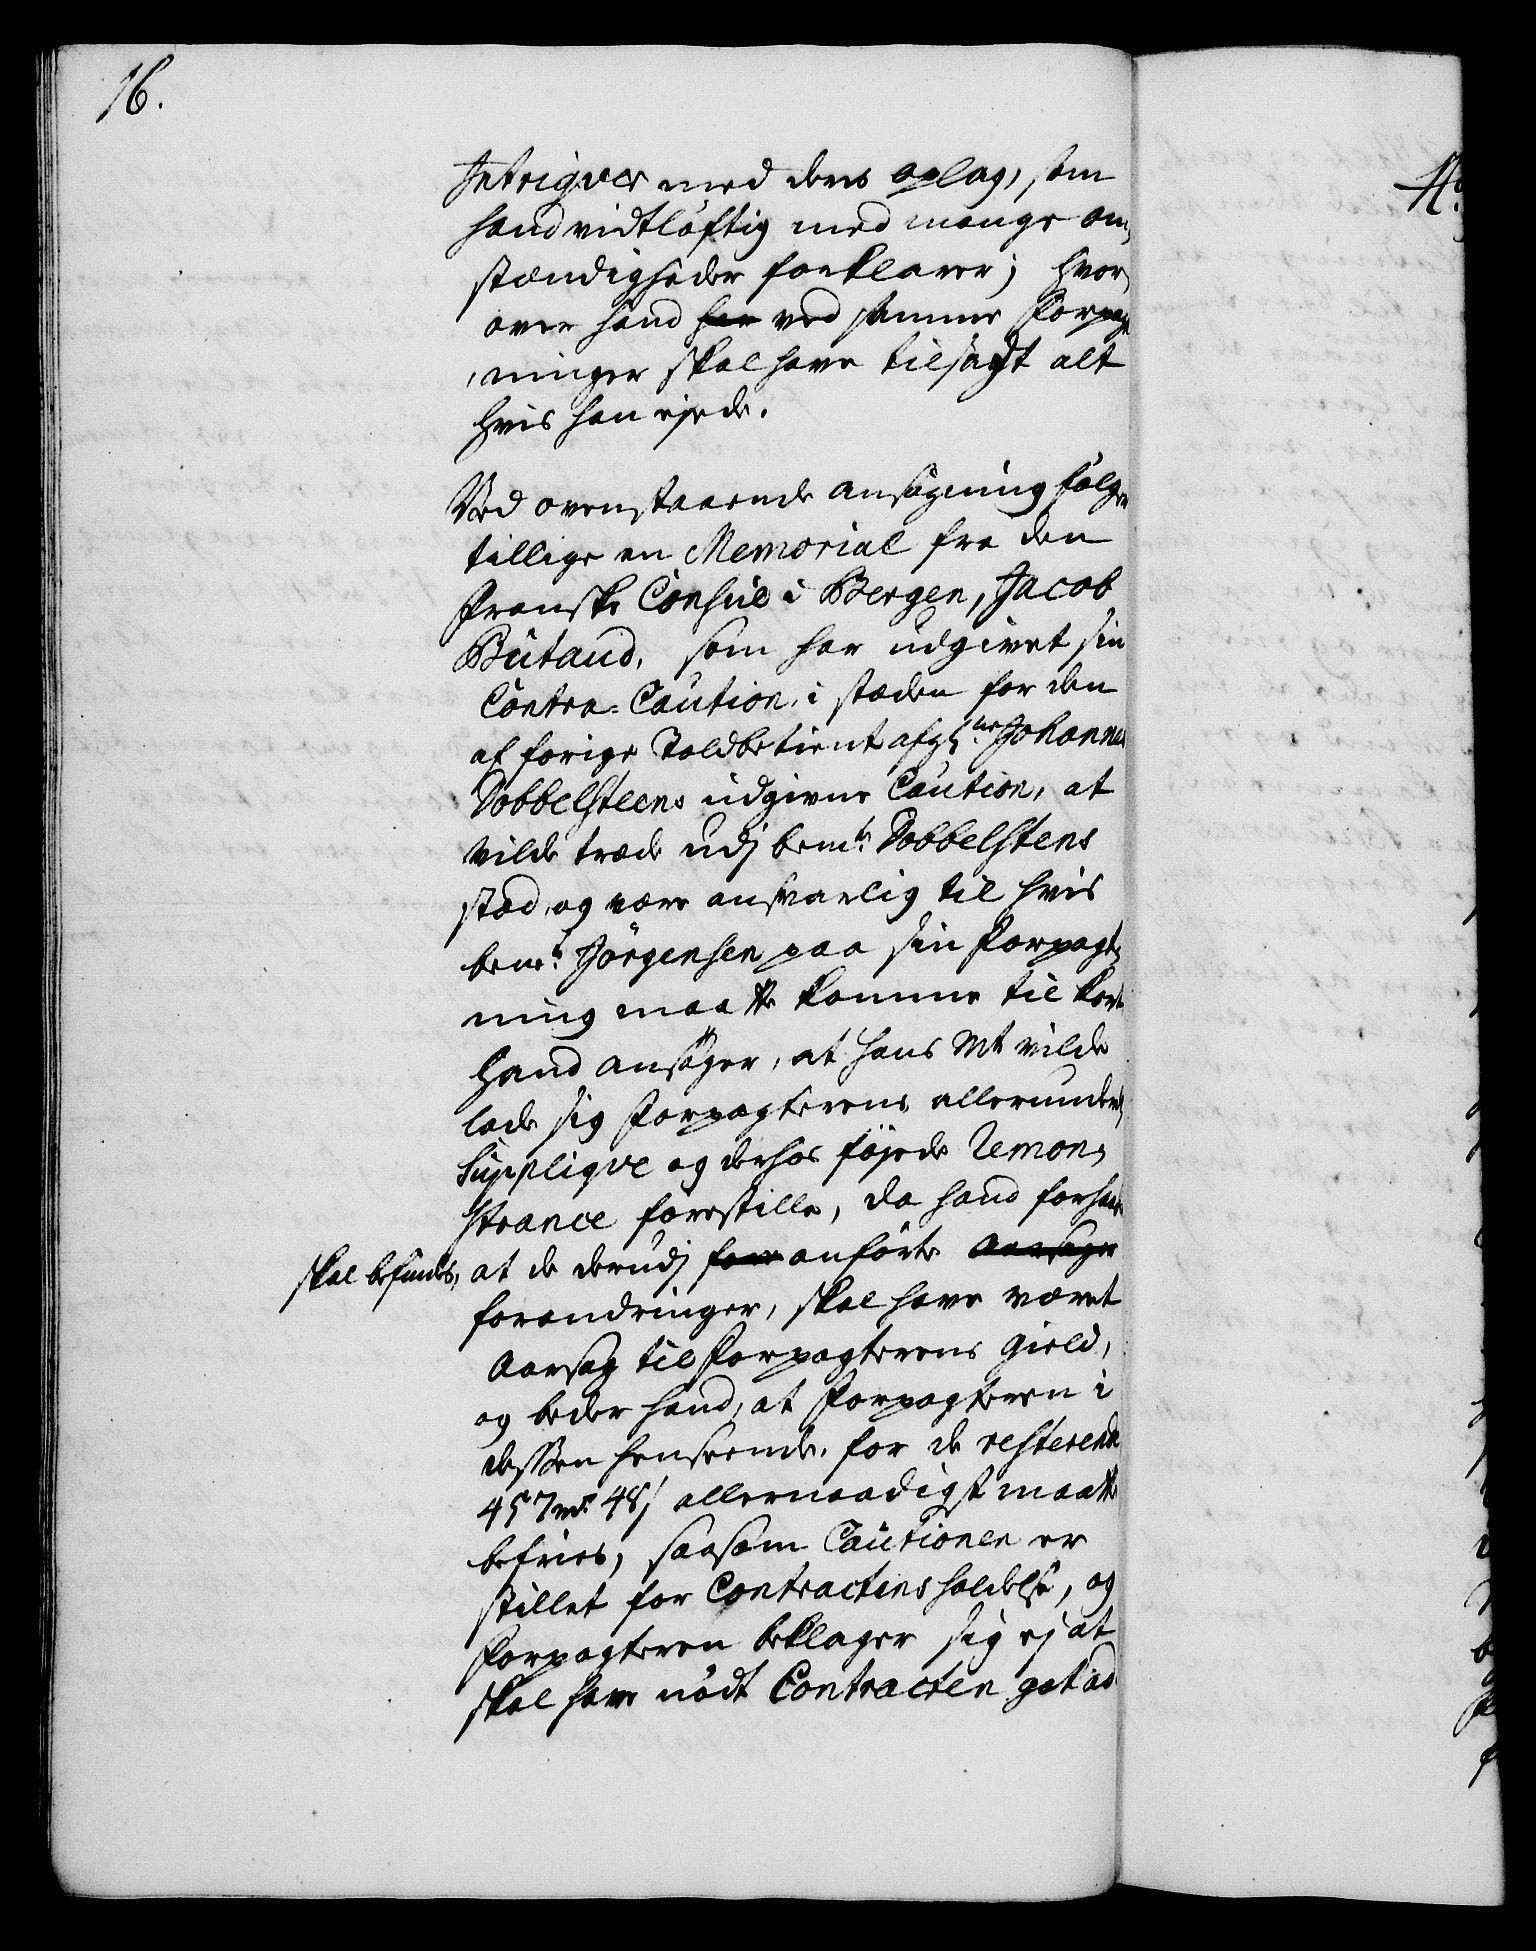 16.
Intriqver med dens oplag, som
hand vidtløftig med mange om,
stændigheder forklarer; hvor,
over hand har ved samme Forpagt
,ninger skal have tilsadt alt
hvis han ejede.
Ved ovenstaaende ansøgning følger
tillige en Memorial fra den
Franske Consul i Bergen, Jacob
Butaud, som har udgivet sin
Contra-Caution, i stæden for den
af forige Toldbetient afg: Johannes
Dobbelsteens udgivne Caution, at
vilde træde udj bemte Dobbelstens
stæd, og være ansvarlig til hvis
bemte Jørgensen paa sin Forpagt,
ning maatte komme til kort
Hand ansøger, at hans Mt vilde
lade sig Forpagterens allerunder,
Suppliqve og derhos føjede Remon,
strance forestille, da hand forhaaber
skal befindes,
at de derudj for anførte Aarsager
forandringer, skal have været
Aarsag til Forpagterens Gield,
og beder hand, at Forpagteren i
dessen henseende, for de resterende
457 rdr 48 s allernaadigst maatte
befries, saasom Cautionen er
stillet for Contractens holdelse, og
Forpagteren beklager sig ej at
skal have nødt Contracten gotad